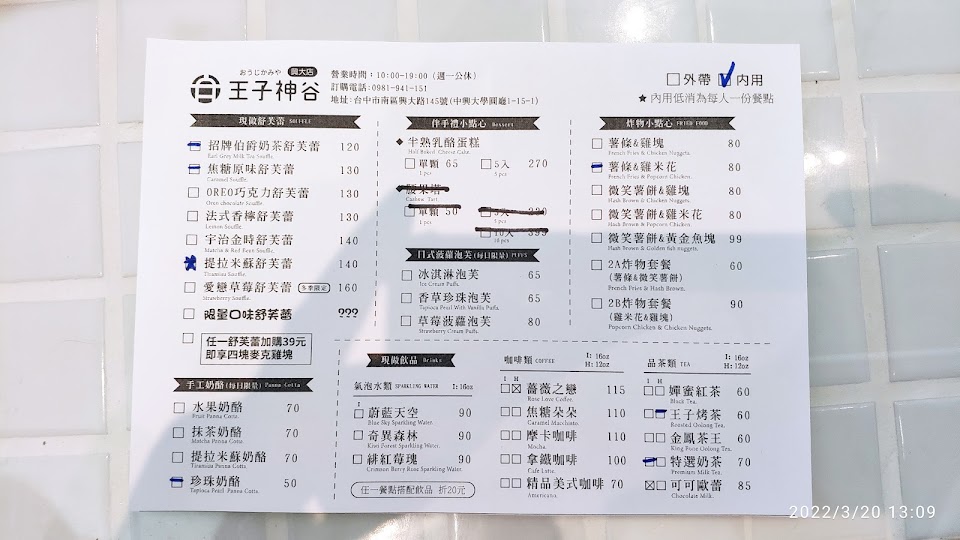 おうじかみや
王子神谷 興大店
營業時間：10:00-19:00 (週一公休)
訂購電話:0981-941-151
地址:台中市南區興大路145號(中興大學圓廳1-15-1)
外帶 內用
★內用低消為每人一份餐點
現做舒芙蕾 SOUFFLE
招牌伯爵奶茶舒芙蕾 120
Earl Grey Milk Tea Souffle.
焦糖原味舒芙蕾 130
Caramel Souffle.
OREO巧克力舒芙蕾 130
Oreo chocolate Souffle.
法式香檸舒芙蕾 130
Lemon Souffle.
宇治金時舒芙蕾 140
Matcha & Red Bean Souffle.
提拉米蘇舒芙蕾 140
Tiramisu Souffle.
愛戀草莓舒芙蕾 冬季限定 160
Strawberry Souffle.
限量口味舒芙蕾 ???
任一舒芙蕾加購39元
即享四塊麥克雞塊
手工奶酪(每日限量) Panna Cotta
水果奶酪 70
Fruit Panna Cotta.
抹茶奶酪 70
Matcha Panna Cotta.
提拉米蘇奶酪 70
Tiramisu Panna Cotta.
珍珠奶酪 50
Tapioca Pearl Panna Cotta.
伴手禮小點心 Dessers
◆半熟乳酪蛋糕
Half Baked Cheese Cake.
單顆 65 5入 270
1 pcs 5 pcs
腰果塔
Cashew Tart.
單顆 50 5入
1 pcs 5 pcs
10入 399
10 pcs
日式菠蘿泡芙(每日限量) PUFFS
冰淇淋泡芙 65
Ice Cream Puffs.
香草珍珠泡芙 65
Tapioca Pearl With Vanilla Puffs.
草莓菠蘿泡芙 80
Strawberry Cream Puffs.
炸物小點心 FRIED FOOD
薯條&雞塊 80
French Fries & Chicken Nuggets.
薯條&雞米花 80
French Fries & Popcorn Chicken.
微笑薯餅&雞塊 80
Hash Brown & Chicken Nuggets.
微笑薯餅&雞米花 80
Hash Brown & Popcorn Chicken.
微笑薯餅&黃金魚塊 99
Hash Brown & Golden fish nuggets.
2A炸物套餐 60
(薯條&微笑薯餅)
French Fries & Hash Brown.
2B炸物套餐 90
(雞米花&雞塊)
Popcorn Chicken & Chicken Nuggets.
現做飲品 Drinks
氣泡水類 SPARKLING WATER I:16oz
I
蔚藍天空 90
Blue Sky Sparkling Water.
奇異森林 90
Kiwi Forest Sparkling Water.
緋紅莓瑰 90
Crimson Berry Rose Sparkling Water.
任一餐點搭配飲品 折20元
咖啡類 COFFEE I: 16oz
H: 12oz
I H
薔薇之戀 115
Rose Love Coffee.
焦糖朵朵 110
Caramel Macchiato.
摩卡咖啡 110
Mocha.
拿鐵咖啡 100
Cafe Latte.
精品美式咖啡 70
Americano.
品茶類 TEA I: 16oz
H: 12oz
I H
嬋蜜紅茶 60
Black Tea.
王子烤茶 60
Roasted Oolong Tea.
金鳳茶王 60
King Pose Oolong Tea.
特選奶茶 70
Premium Milk Tea.
可可歐蕾 85
Chocolate Milk.
2022/3/20 13:09